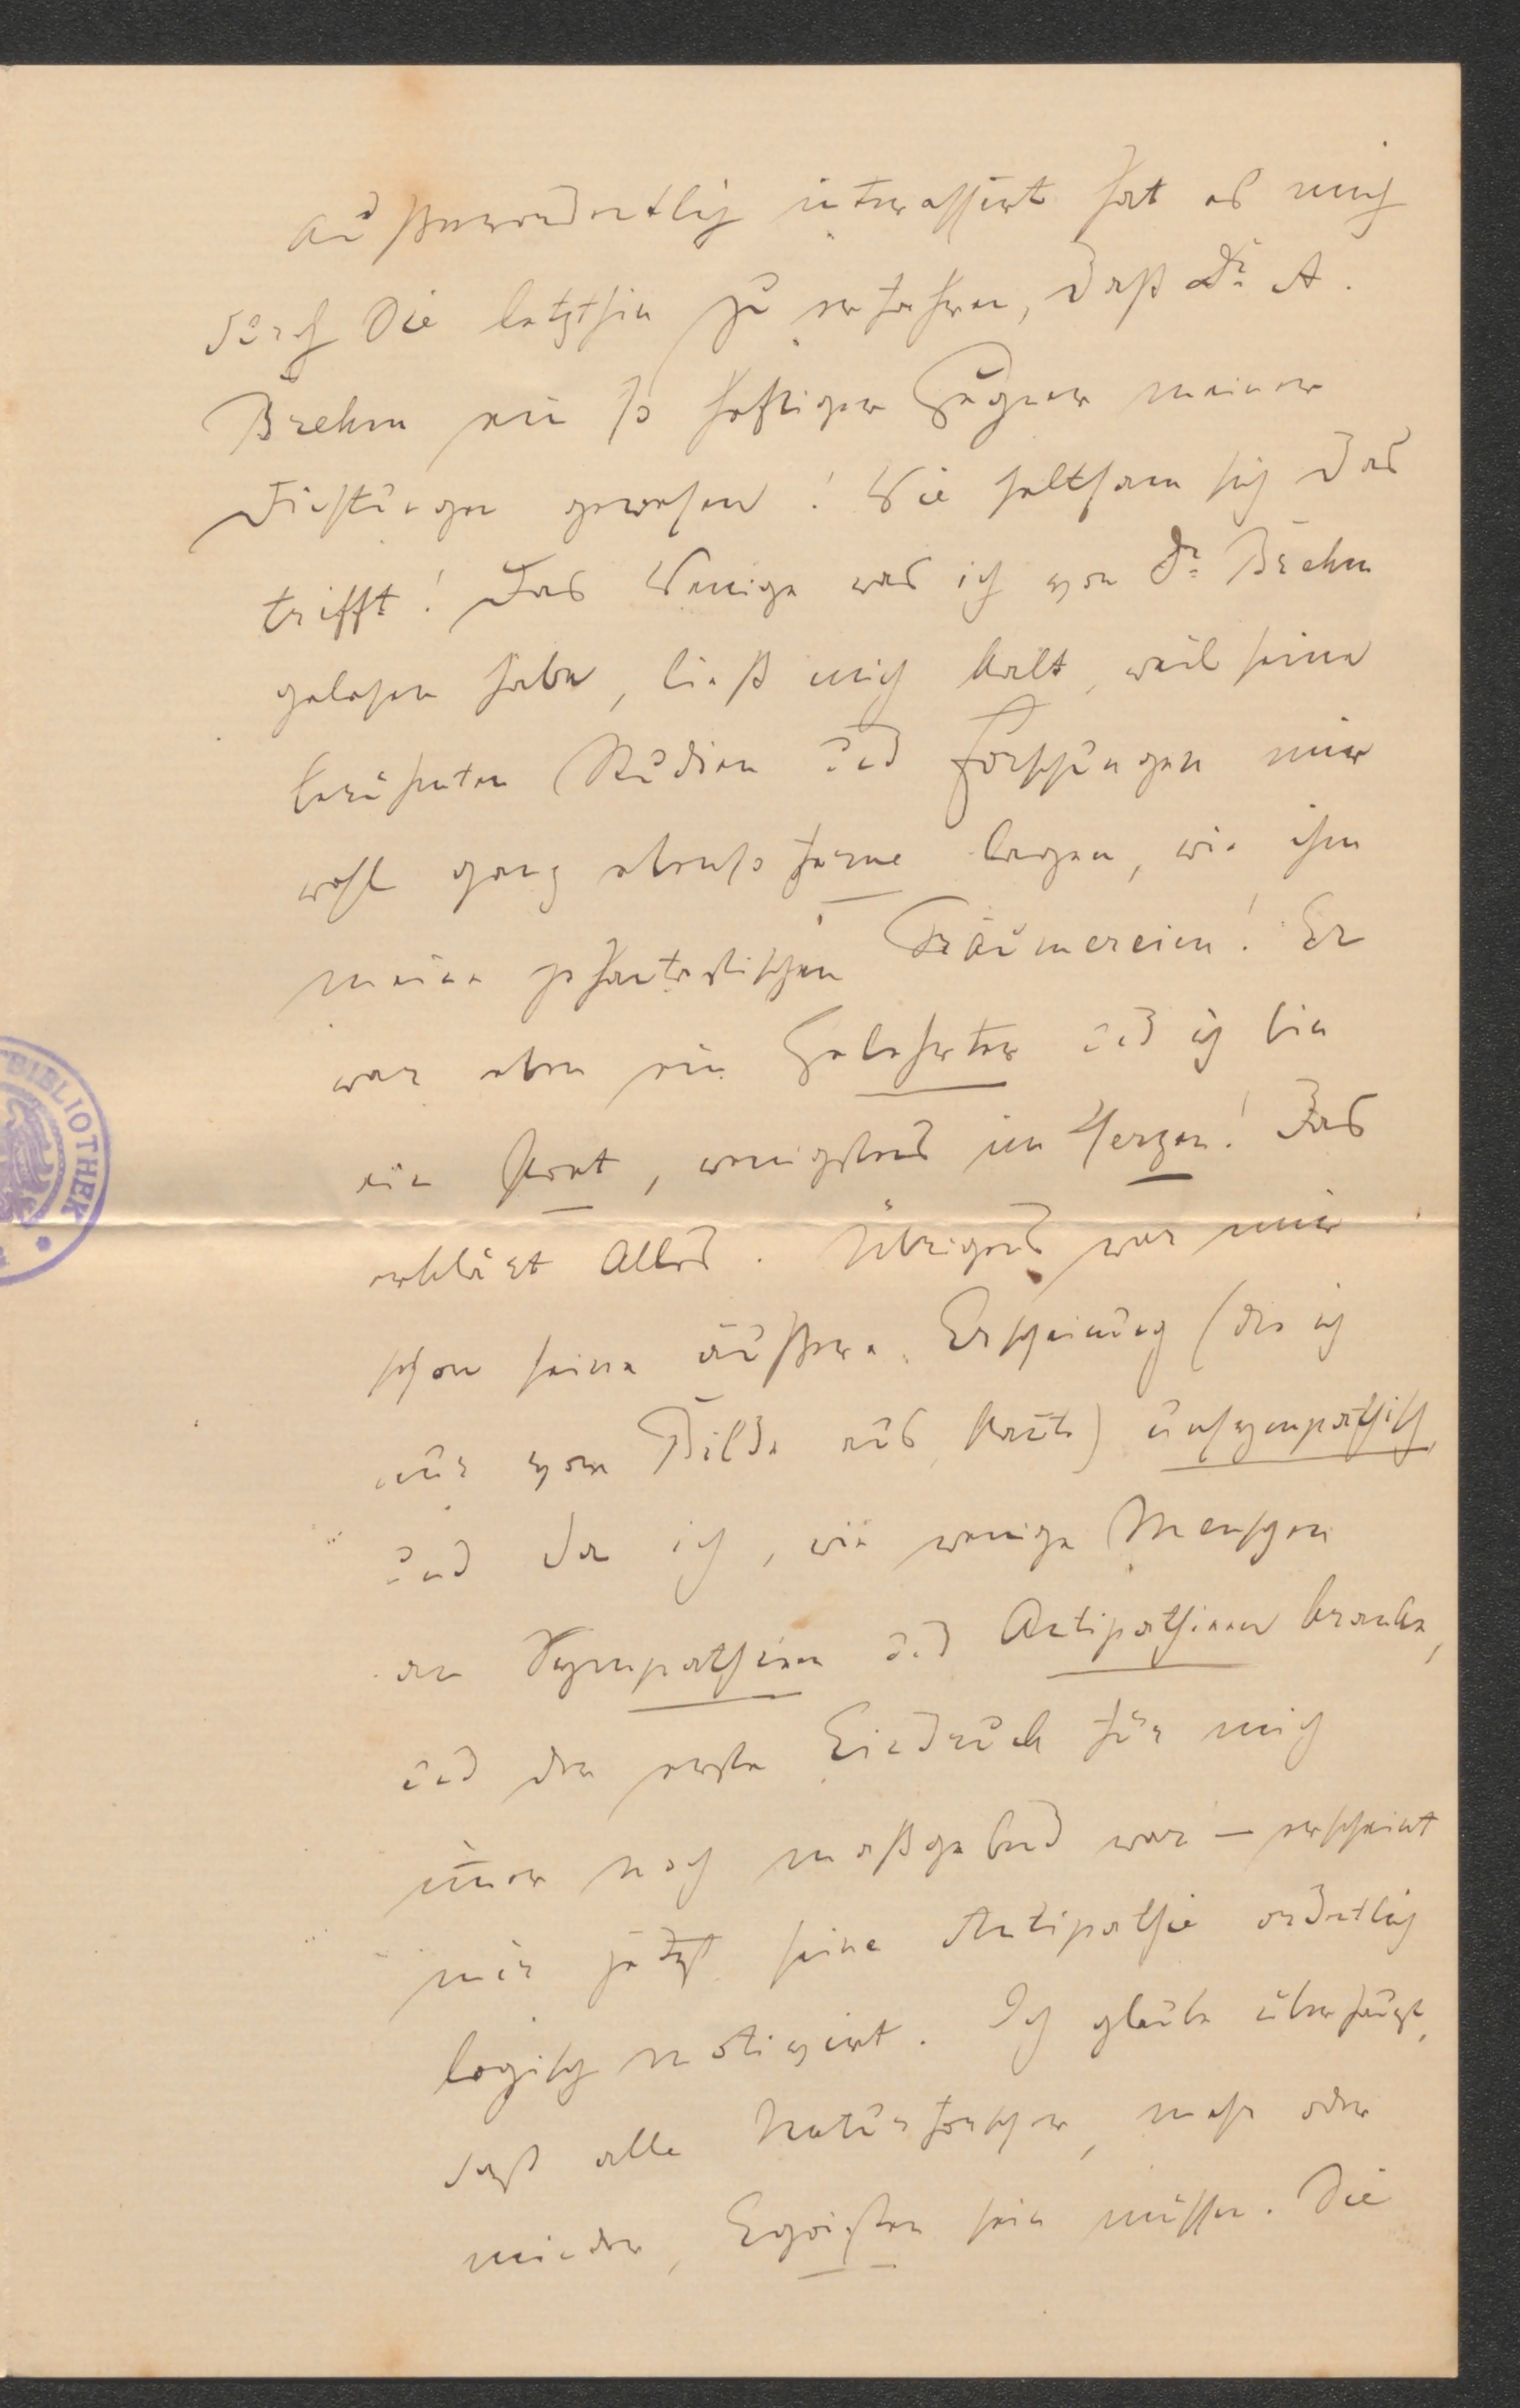 Außerordentlich interessirt hat es mich
durch Die letzthin zu erfahren, daß Dr A.
Brehm ein so heftiger Gegner meiner
Dichtungen gewesen! Wie seltsam sich das
trifft! Das Wenige was ich von Dr Brehm
gelesen habe, ließ mich kalt, weil seine
berühmten Studien und Forschungen mir
wohl ganz ebenso ferne lagen, wie ihm
meine phantastischen Träumereien! Er
war eben ein Gelehrter und ich bin
ein Poet, wenigstens im Herzen! Das
erklärt Alles. Übrigens war mir
schon seine äußere Erscheinung (die ich
nur vom Bilde aus kannte) unsympathisch
und da ich, wie wenige Menschen
an Sympathieen und Antipathieen kranke,
und der erste Eindruck für mich
im̅er noch maßgebend war – erscheint
mir jetzt seine Antipathie ordentlich
logisch motivirt. Ich glaube überhaupt,
daß alle Naturforscher, mehr oder
minder, Egoisten sein müssen. Die
BIBLIOTHEK